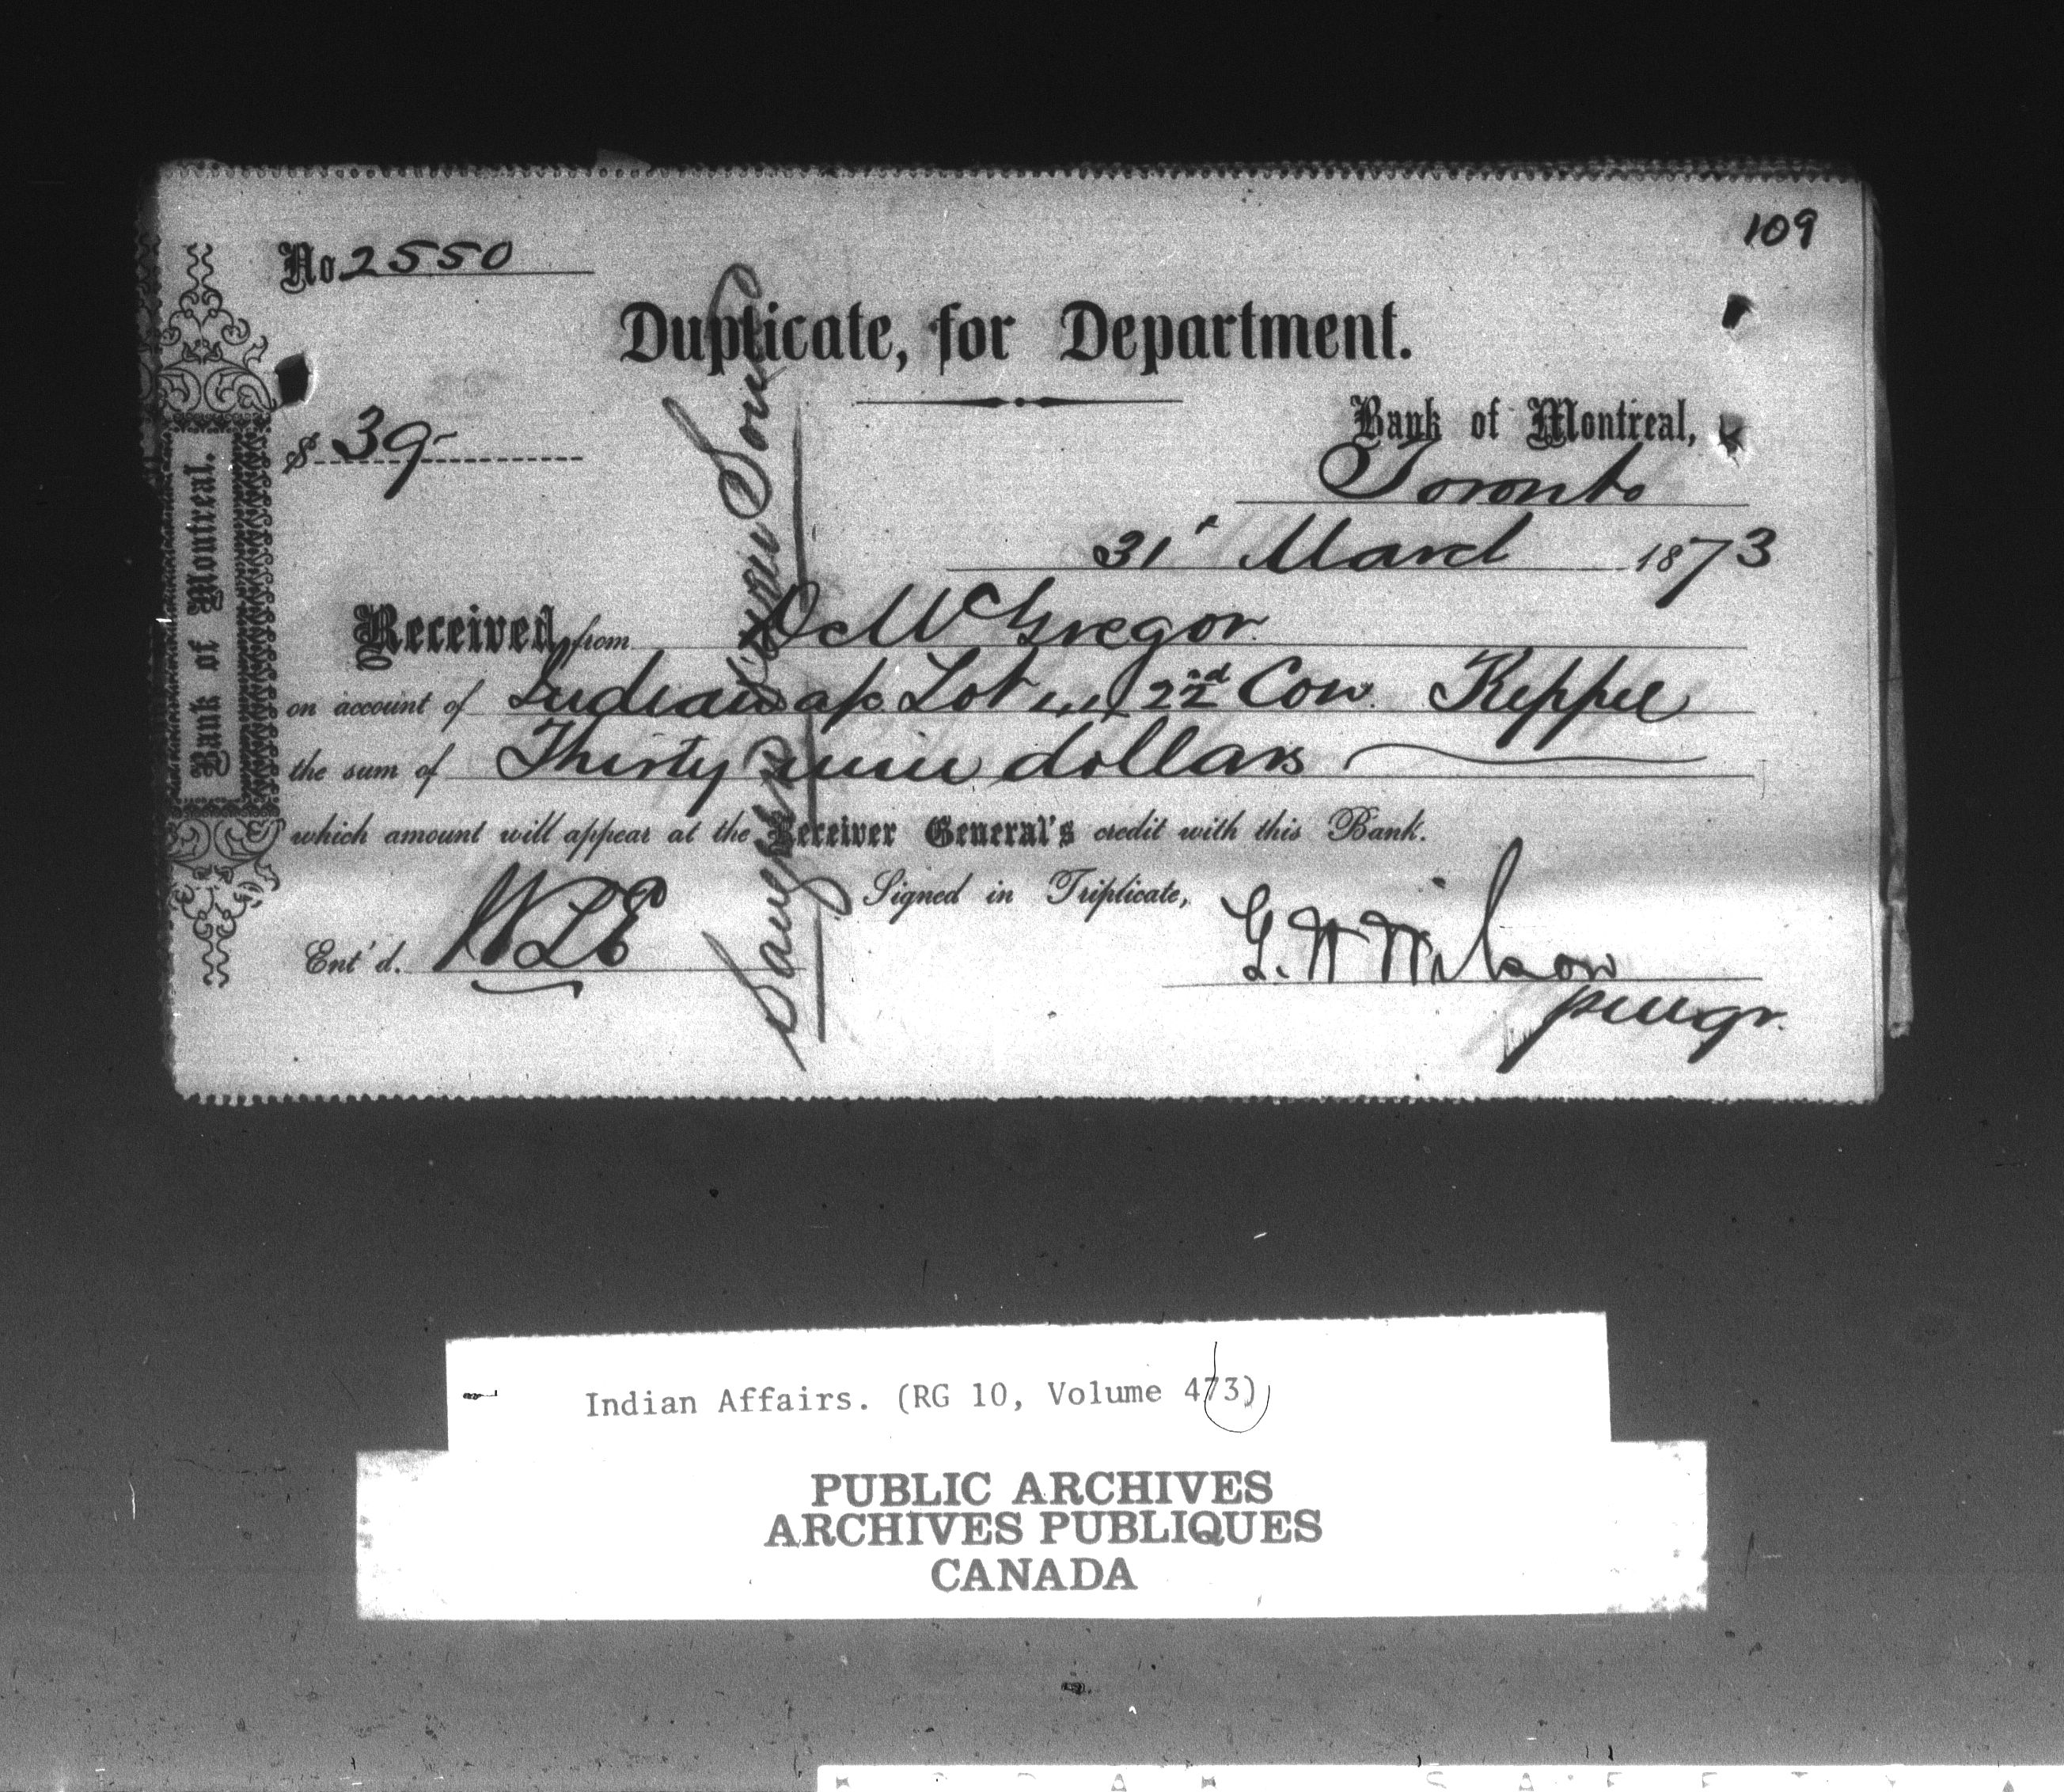 109
No. 2550
Duplicate, for Department.
$ 39-
Bank of Montreal,
Toronto
31st March 1873
Received from D McGregor
on account of Indian a/c Lot 22nd Con. Keppel
the sum of Thirty nine dollars
which amount will appear at the Receiver General's credit with this Bank.
Signed in Triplicate,
Ent'd.
G. W Wilson
Bank of Montreal.
Saugeen Owen Sound
Indian Affairs. (RG 10, Volume 473)
PUBLIC ARCHIVES
ARCHIVES PUBLIQUES
CANADA